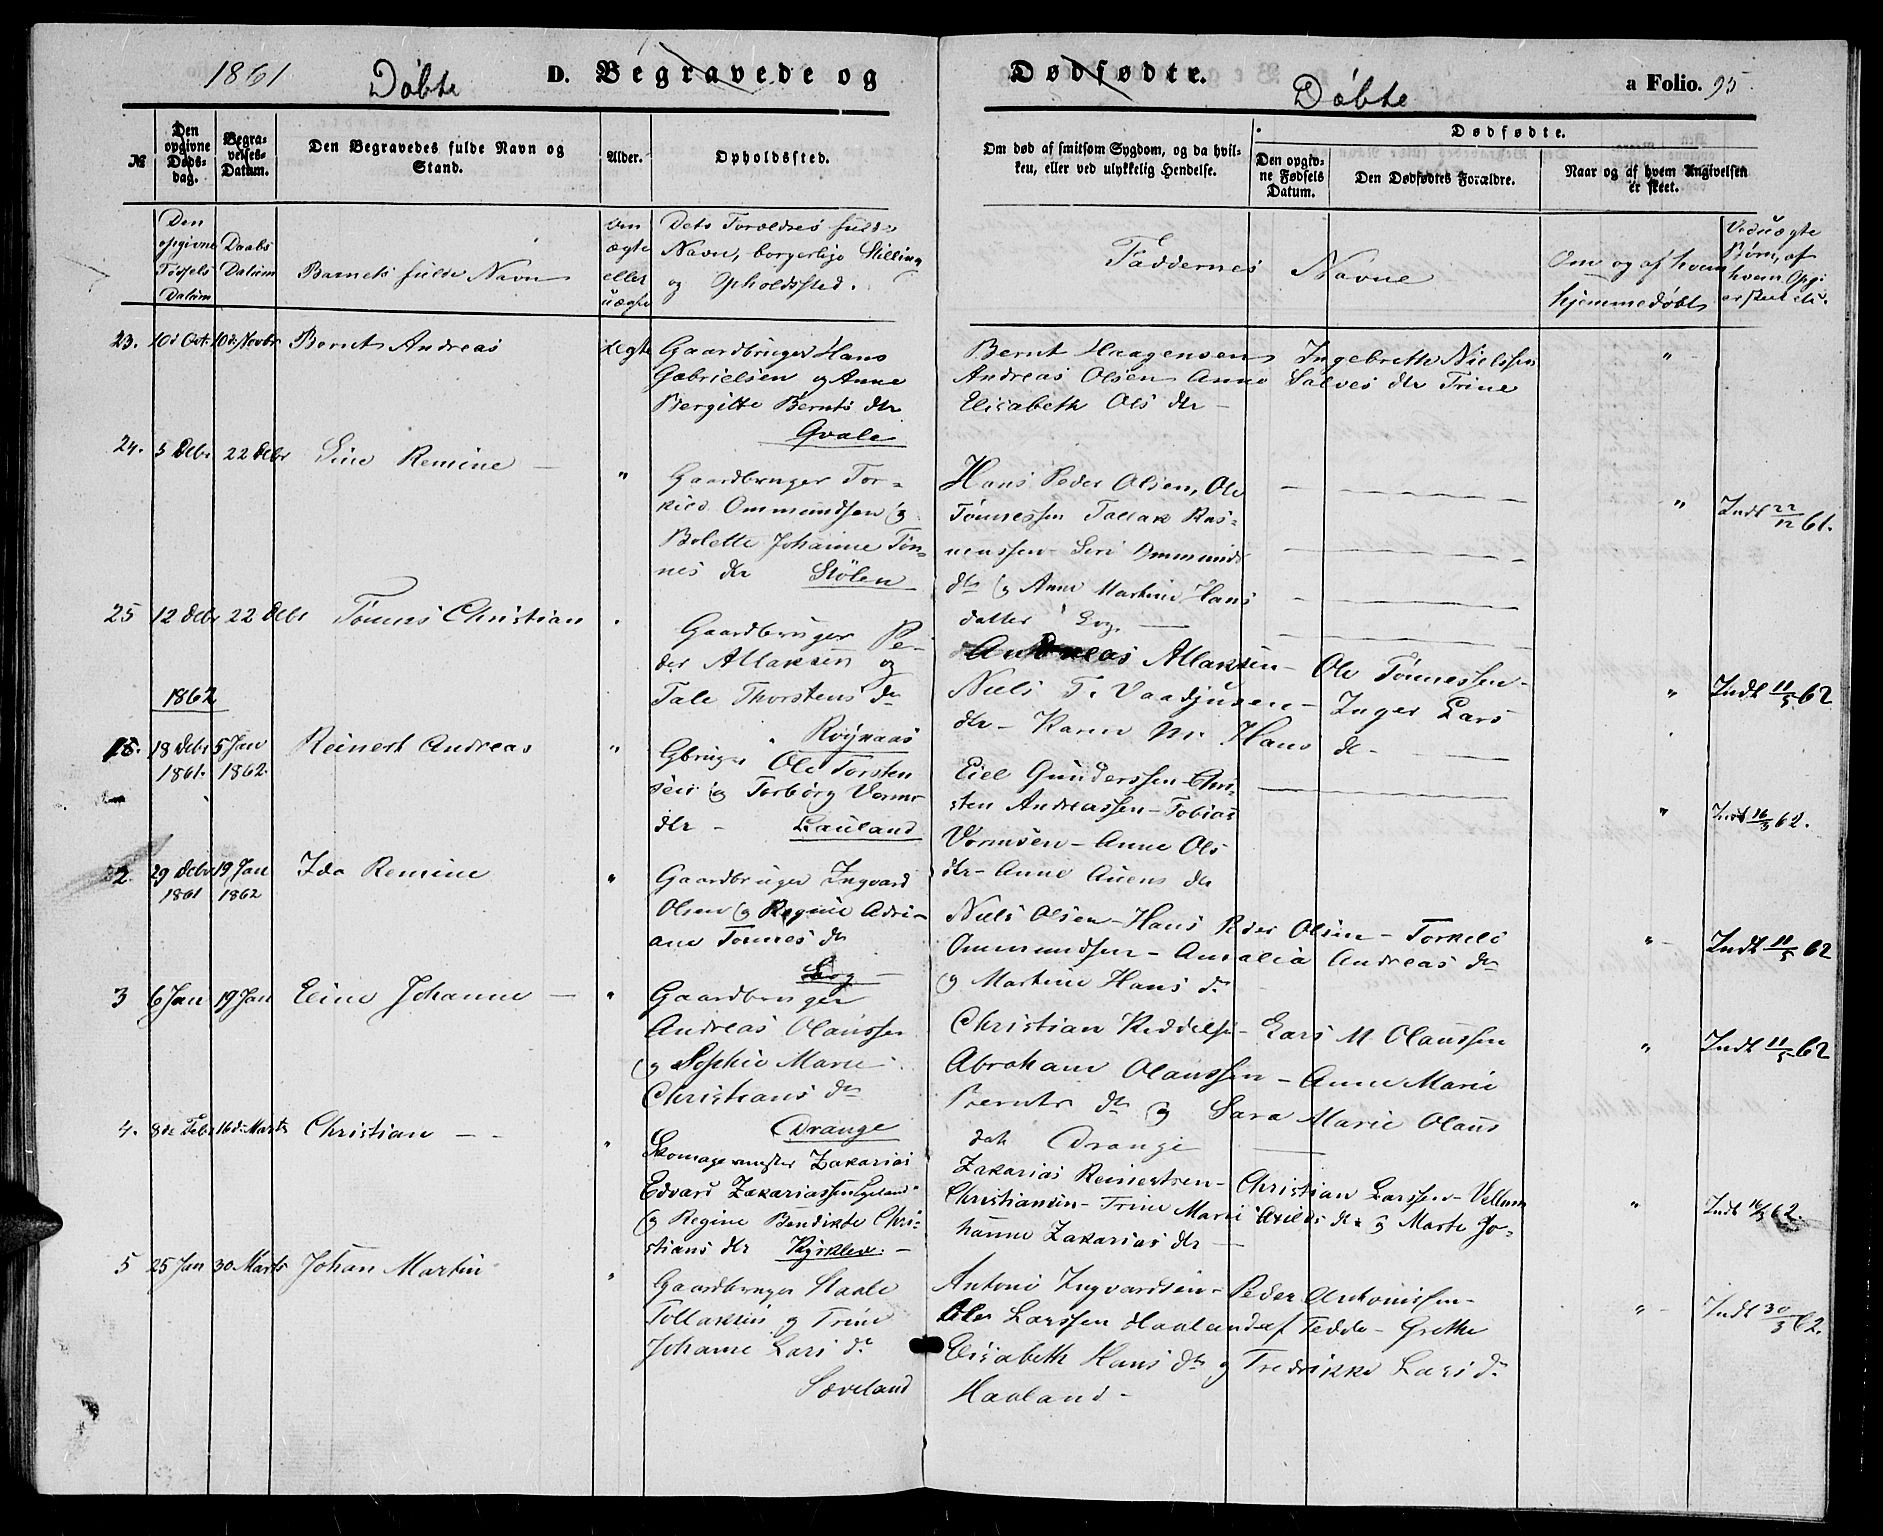 1861 Døbte D. Begravede og Dødfødte. Døbte a Folio. 95.
№
Den opgivne Døds-dag.
Begra-velses-Datum.
Den Begravedes fulde Navn og Stand.
Alder.
Opholdssted.
Om død af smitsom Sygdom, og da hvil-
ken, eller ved ulykkelig Hendelse.
Dødfødte.
Den opgiv-ne Fødsels Datum.
Den Dødfødtes Forældre.
Naar og af hvem Angivelsen er skeet.
Den opgivne Fødsels Datum
Daabs Datum
Barnets fulde Navn
Om ægte eller uægte
Dets Foreldres fulde
Navn, borgerlige Stilling
og Opholdssted.
Faddernes Navne
Om og af hvem
hjemmedøbt
Ved uægte
Børn, af
hvem Opgi
er skeet
23. 10d Oct. 10d Novbr Bernt Andreas ægte
Gaardbruger Hans
Gabrielsen og Anne
Bergitte Bernts dtr
Gvale
Bernt Haagensen Ingebreth Nielssen
Andreas Olsen Anne Salves dtr Trine
Elisabeth Ols dtr - "
24. 5 Debr 22 Debr Sine Remine - "
Gaardbruger Tor-
kild Ommundsen og
Bolette Johanne Tøn-
nes dtr Stølen
Hans Peder Olsen, Ole
Tønnessen Tallak Ras-
mussen Siri Ommunds
dtr og Anne Martine Hans
datter Log. —
" Indt 22/12 61.
25 12 Debr 22 Debr Tønnes Christian "
Gaardbruger Pe-
der Allaksen og
Tale Thorstens dr
Røynaas
Andreas Allaksen - Ole Tønnessen -
Niels T. Vaadjusen - Inger Lars
dtr - Karen M. Hans dr -
" Indt 11/5 62
1862
1. 18 Debr 1861. 5 Jan 1862. Reinert Andreas "
Gbruger Ole Torsten
sen og Torborg Vorms
dtr - Lauland
Eiel Gunderssen - Chri-
sten Andreassen - Tobias
Vormsen - Anne Ols
dtr - Anne Auens dtr
" Indt 16/3 62.
2. 29 Debr 1861 19 Jan 1862 Ida Remine "
Gaardbruger Ingvard
Olsen og Regine Adri-
ane Tønnes dr
Log -
Niels Olsen - Hans Peder Olsen - Torkeld
Ommundsen - Amalia Andreas dr
og Martine Hans dr
" Indt 11/5 62
3 6 Jan 19 Jan Eline Johanne - "
Gaardbruger
Andreas Olaussen
og Sophie Marie
Christians dr
Drange
Christian Reddels - Lars M Olaussen
Abraham Olaussen - Anne Marie
Bernts dr og Sara Marie Olaus
datr Drange
" Indt 11/5 62
4. 8de Febr 16d Marts Christian - - "
Skomagermester Zakarias
Edvard Zakariassen Egeland
og Regine Bendikte Chri-
stians dtr
Zakarias Reinertsen - Christian Larssen - Vellum
Christiansen - Trine Marie dr og Marte Jo-
hanne Zakarias dtr -
" Indt 16/3 62.
5 25 Jan 30 Marts Johan Martin "
Gaardbruger Staale
Tollaksen og Trine
Johanne Lars dr
Sæveland
Antoni Ingvardsen - Peder Antonissen -
Ole Larssen Haaland af Fedde - Grethe
Elisabeth Hans dtr og Fredrikke Lars dr
Haaland -
" Indt 30/3 62.